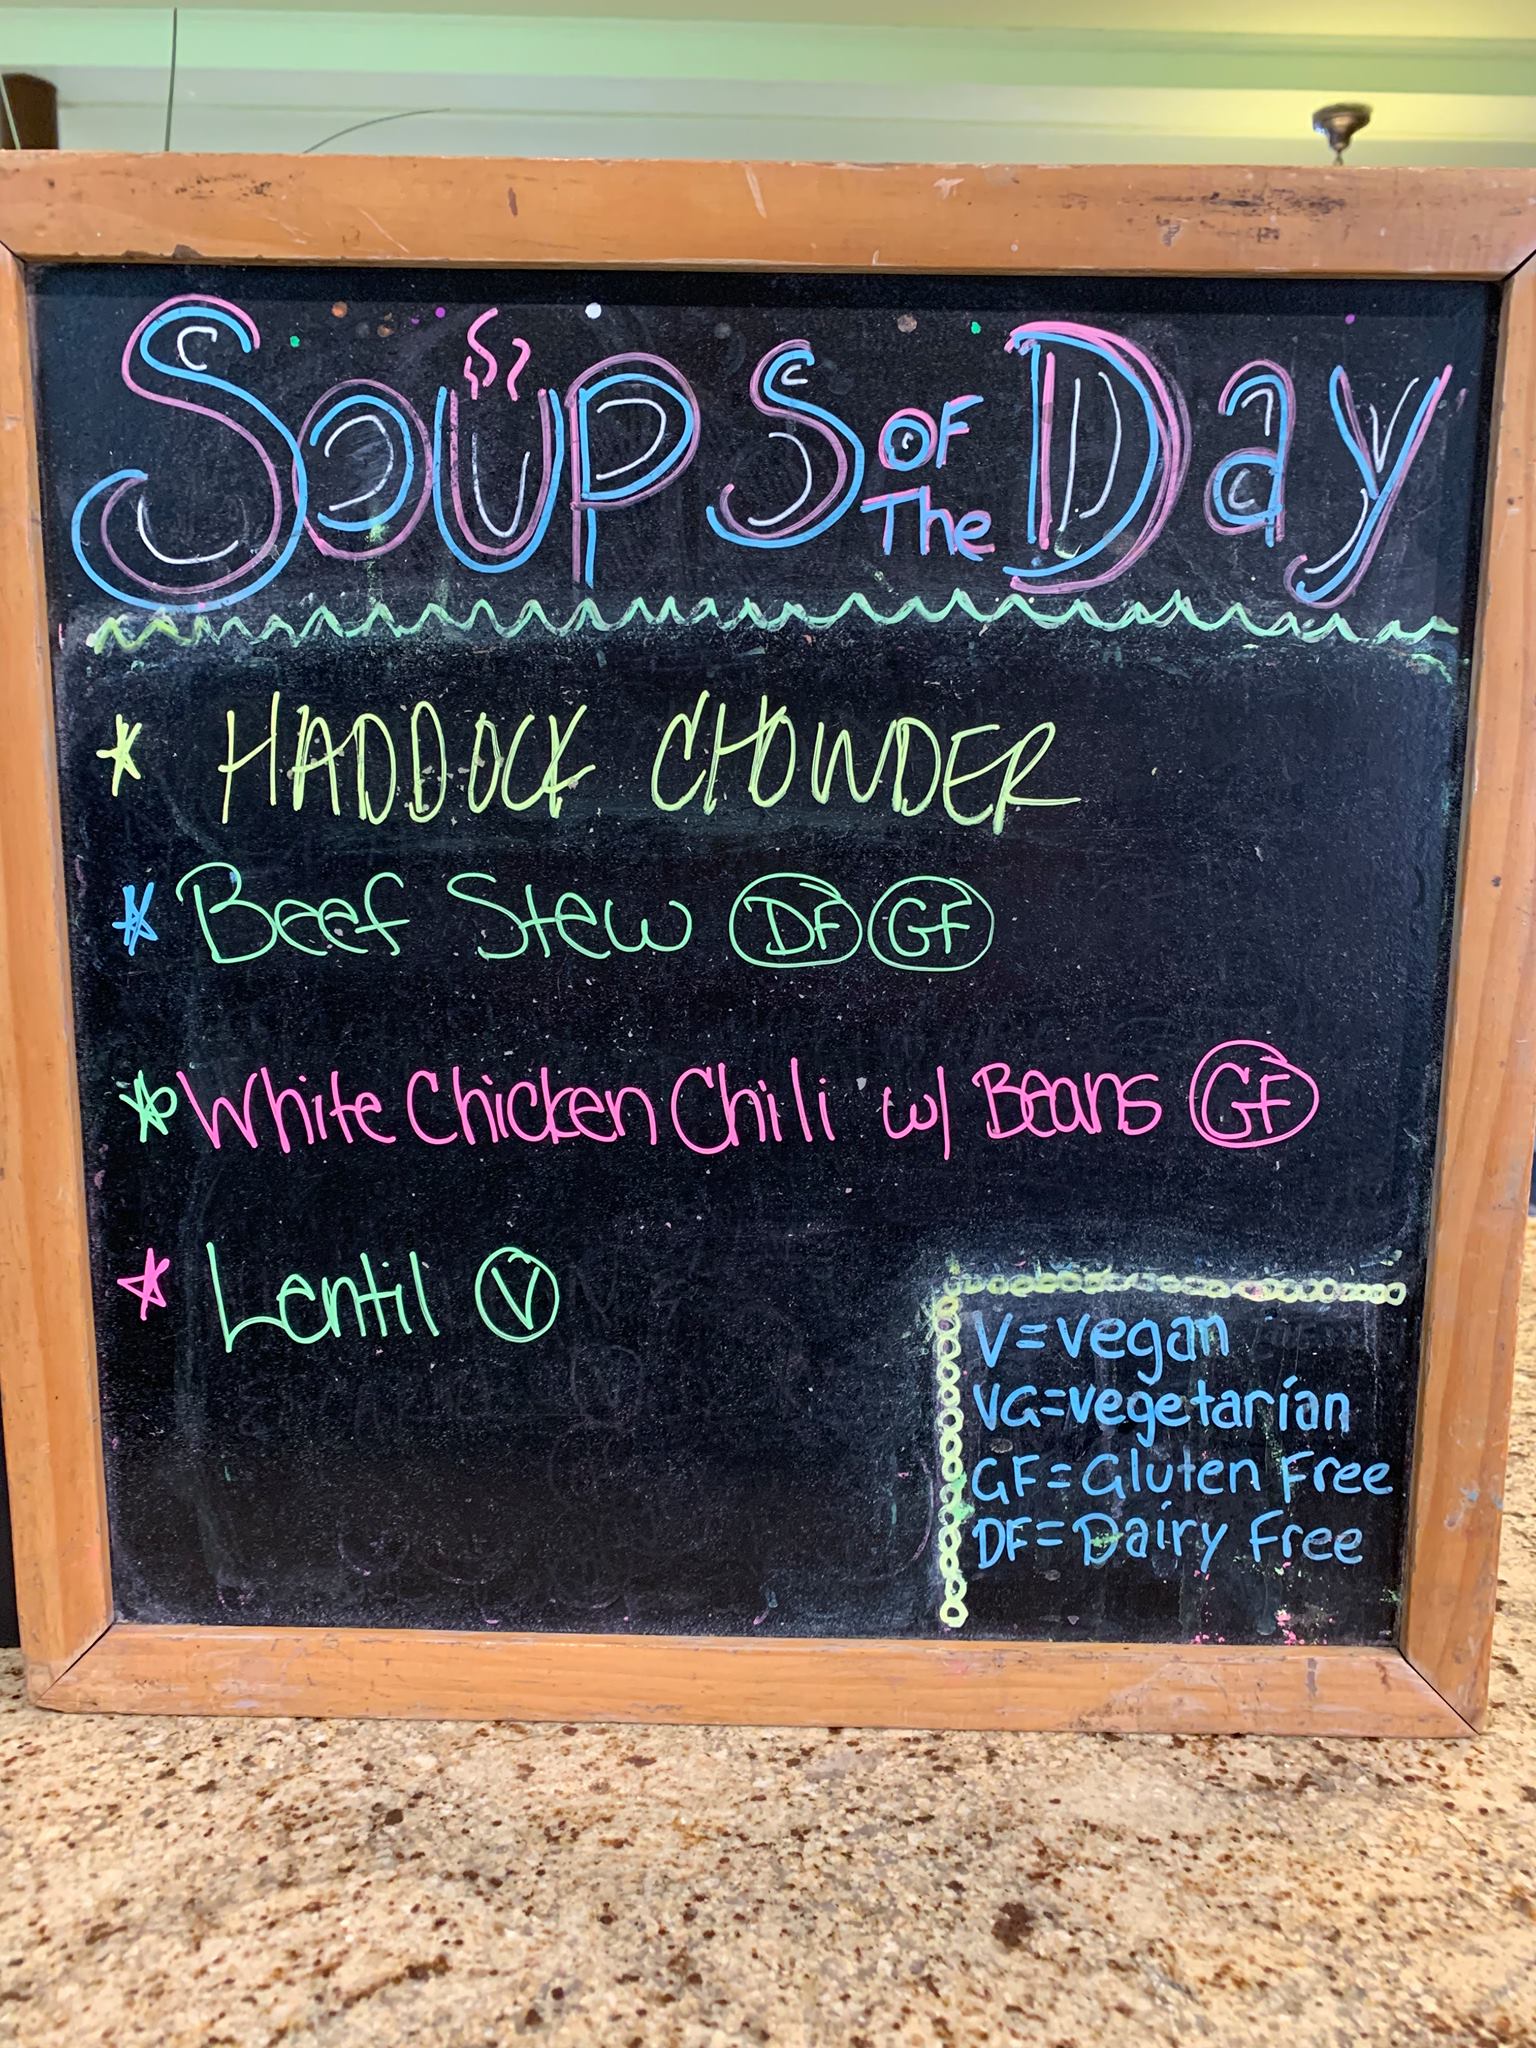 Soups OF The Day
HADDOCK CHOWDER
Beef Stew DF GF
White Chicken Chili w/ Beans GF
Lentil V
V=vegan
VG=vegetarian
GF=Gluten Free
DF=Dairy Free